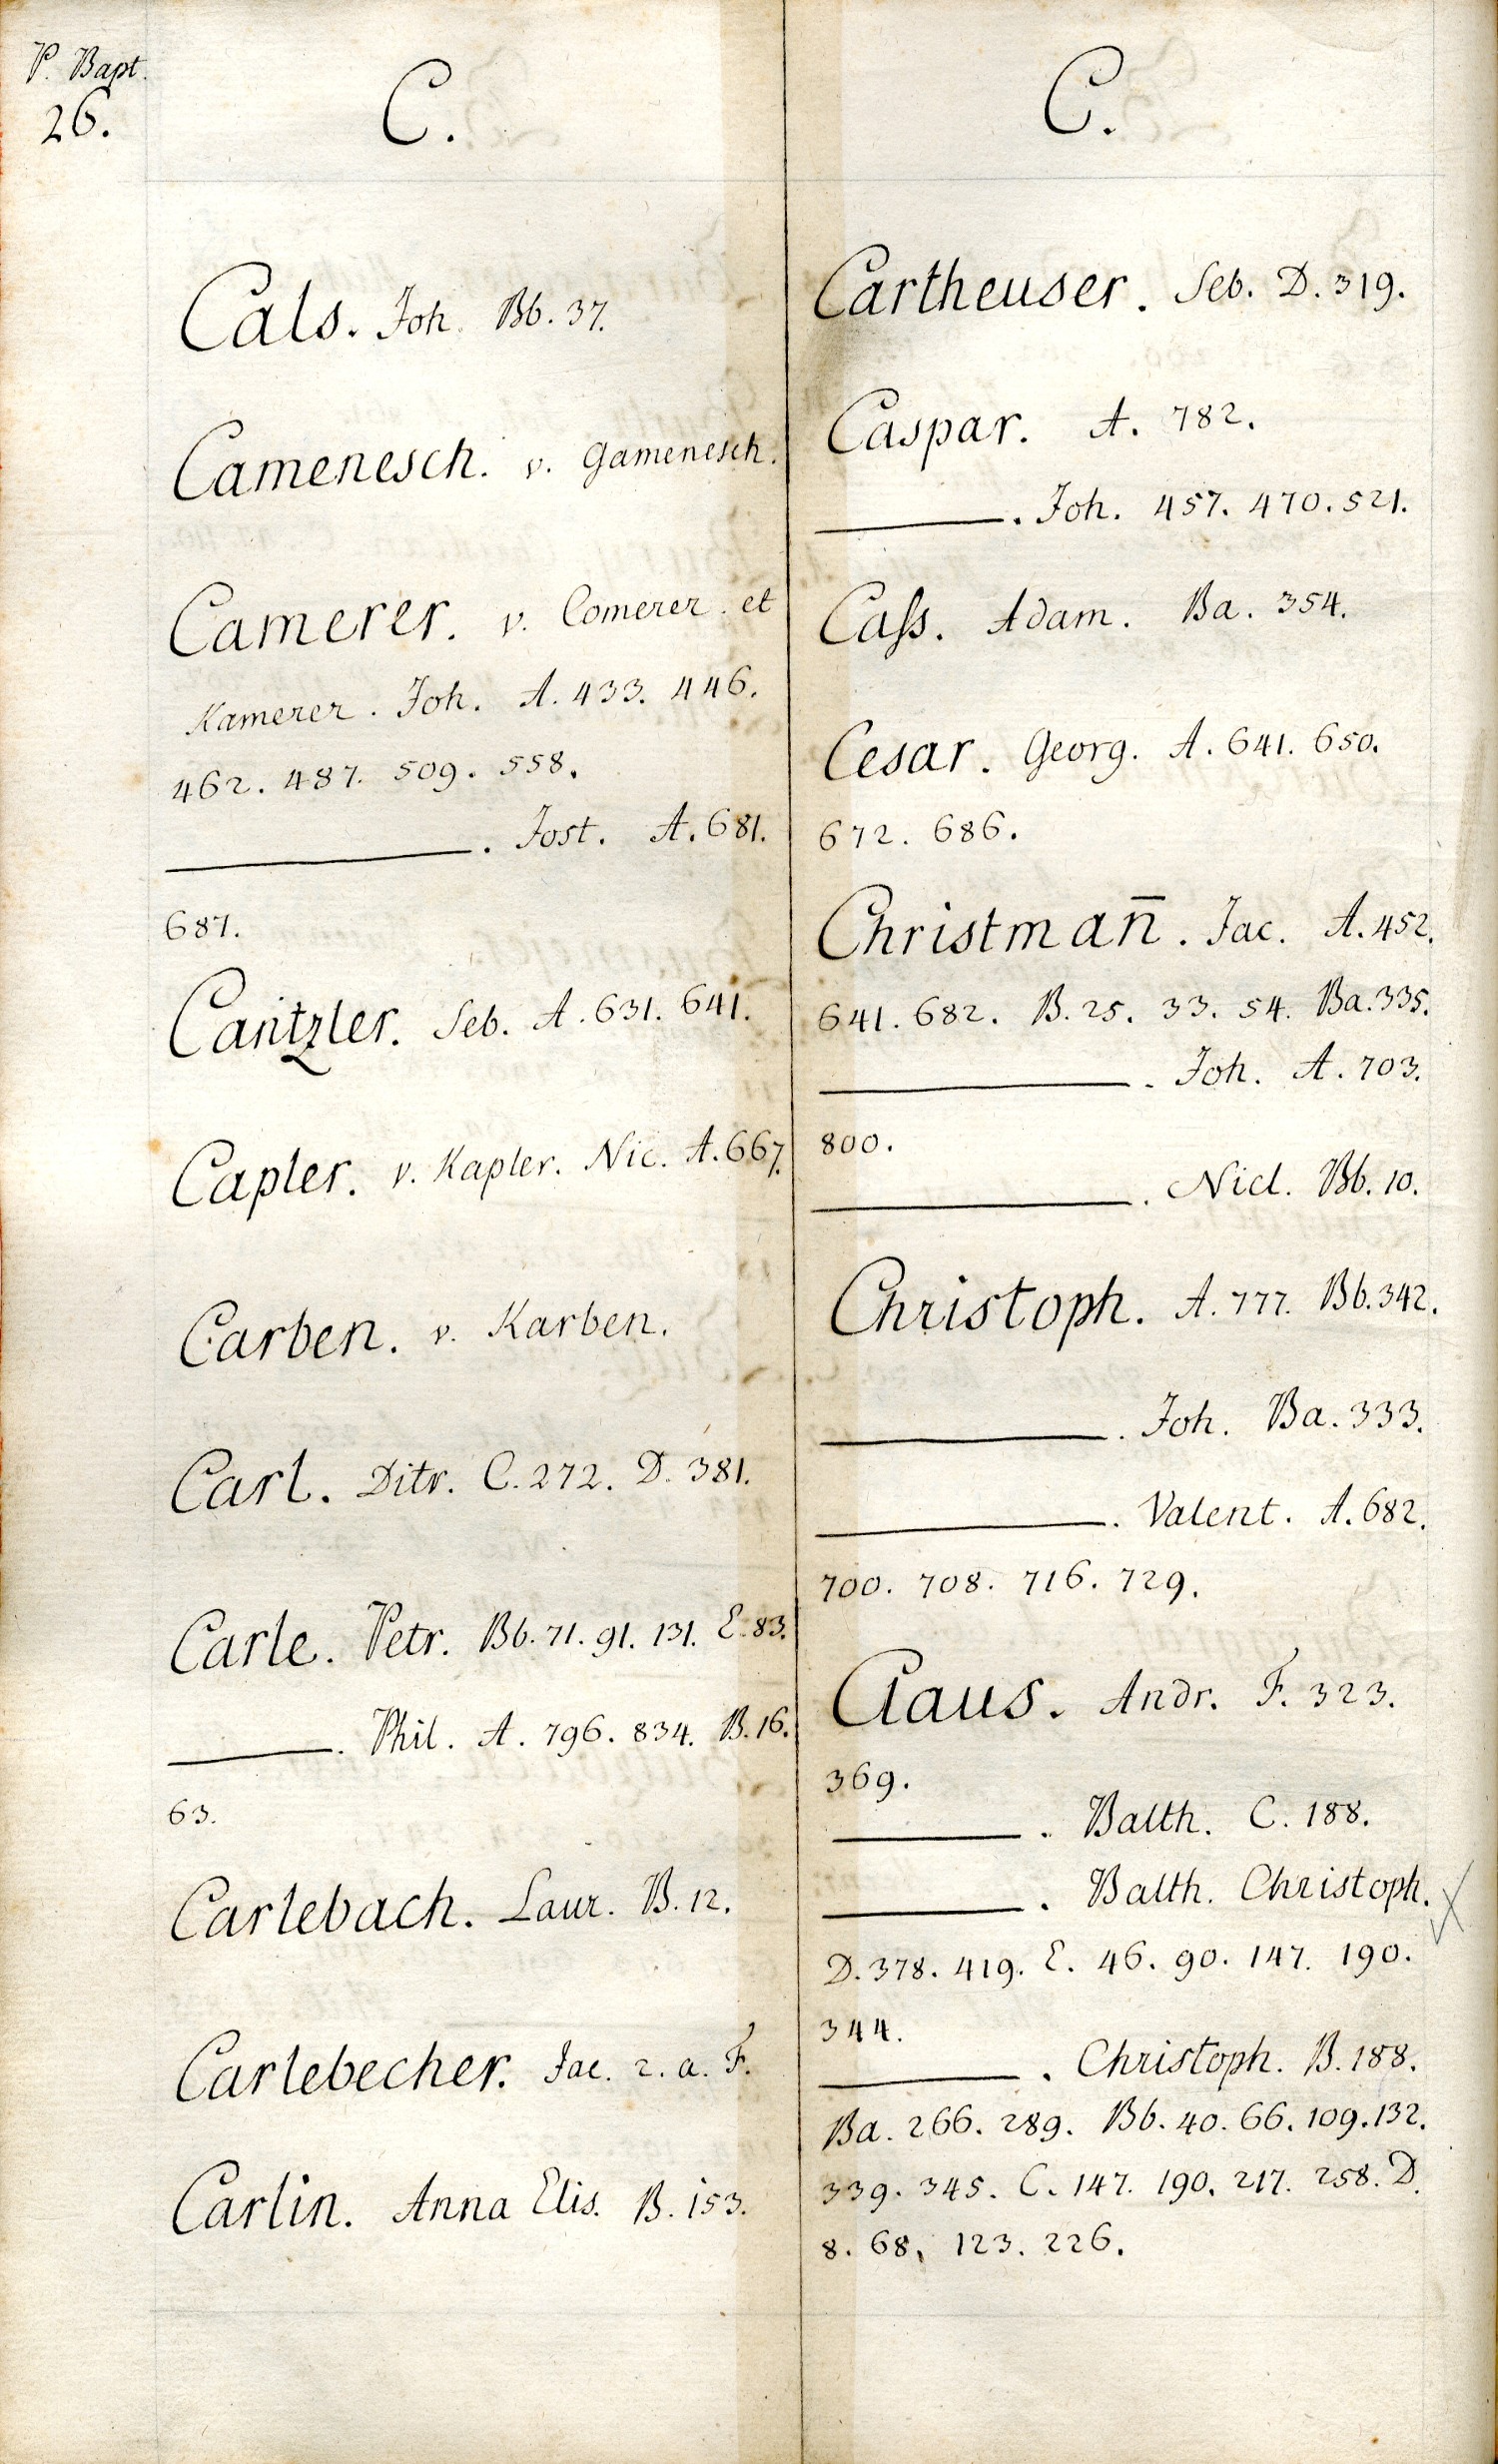 P. Bapt.
26.
C.
Cals. Joh. Bb. 37.
Camenesch. v. Gamenesch.
Camerer. v. Comerer. et
Kamerer. Joh. A. 433. 446.
462. 487. 509. 558.
———. Jost. A. 681.
687.
Cantzler. Seb. A. 631. 641.
Capler. v. Kapler. Nic. A. 667.
Carben. v. Karben.
Carl. Ditr. C. 272. D. 381.
Carle. Petr. Bb. 71. 91. 131. E. 83.
———. Phil. A. 796. 834. B. 16.
63.
Carlebach. Laur. B. 12.
Carlebecher. Jac. 2. a. F.
Carlin. Anna Elis. B. 153.
C.
Cartheuser. Seb. D. 319.
Caspar. A. 782.
———. Joh. 457. 470. 521.
Caſs. Adam. Ba. 354.
Cesar. Georg. A. 641. 650.
672. 686.
Christman̄. Jac. A. 452.
641. 682. B. 25. 33. 54. Ba. 335.
———. Joh. A. 703.
800.
———. Nicl. Bb. 10.
Christoph. A. 777. Bb. 342.
———. Joh. Ba. 333.
———. Valent. A. 682.
700. 708. 716. 729.
Claus. Andr. F. 323.
369.
———. Balth. C. 188.
———. Balth. Christoph.
D. 378. 419. E. 46. 90. 147. 190.
344.
———. Christoph. B. 188.
Ba. 266. 289. Bb. 40. 66. 109. 132.
339. 345. C. 147. 190. 217. 258. D.
8. 68. 123. 226.